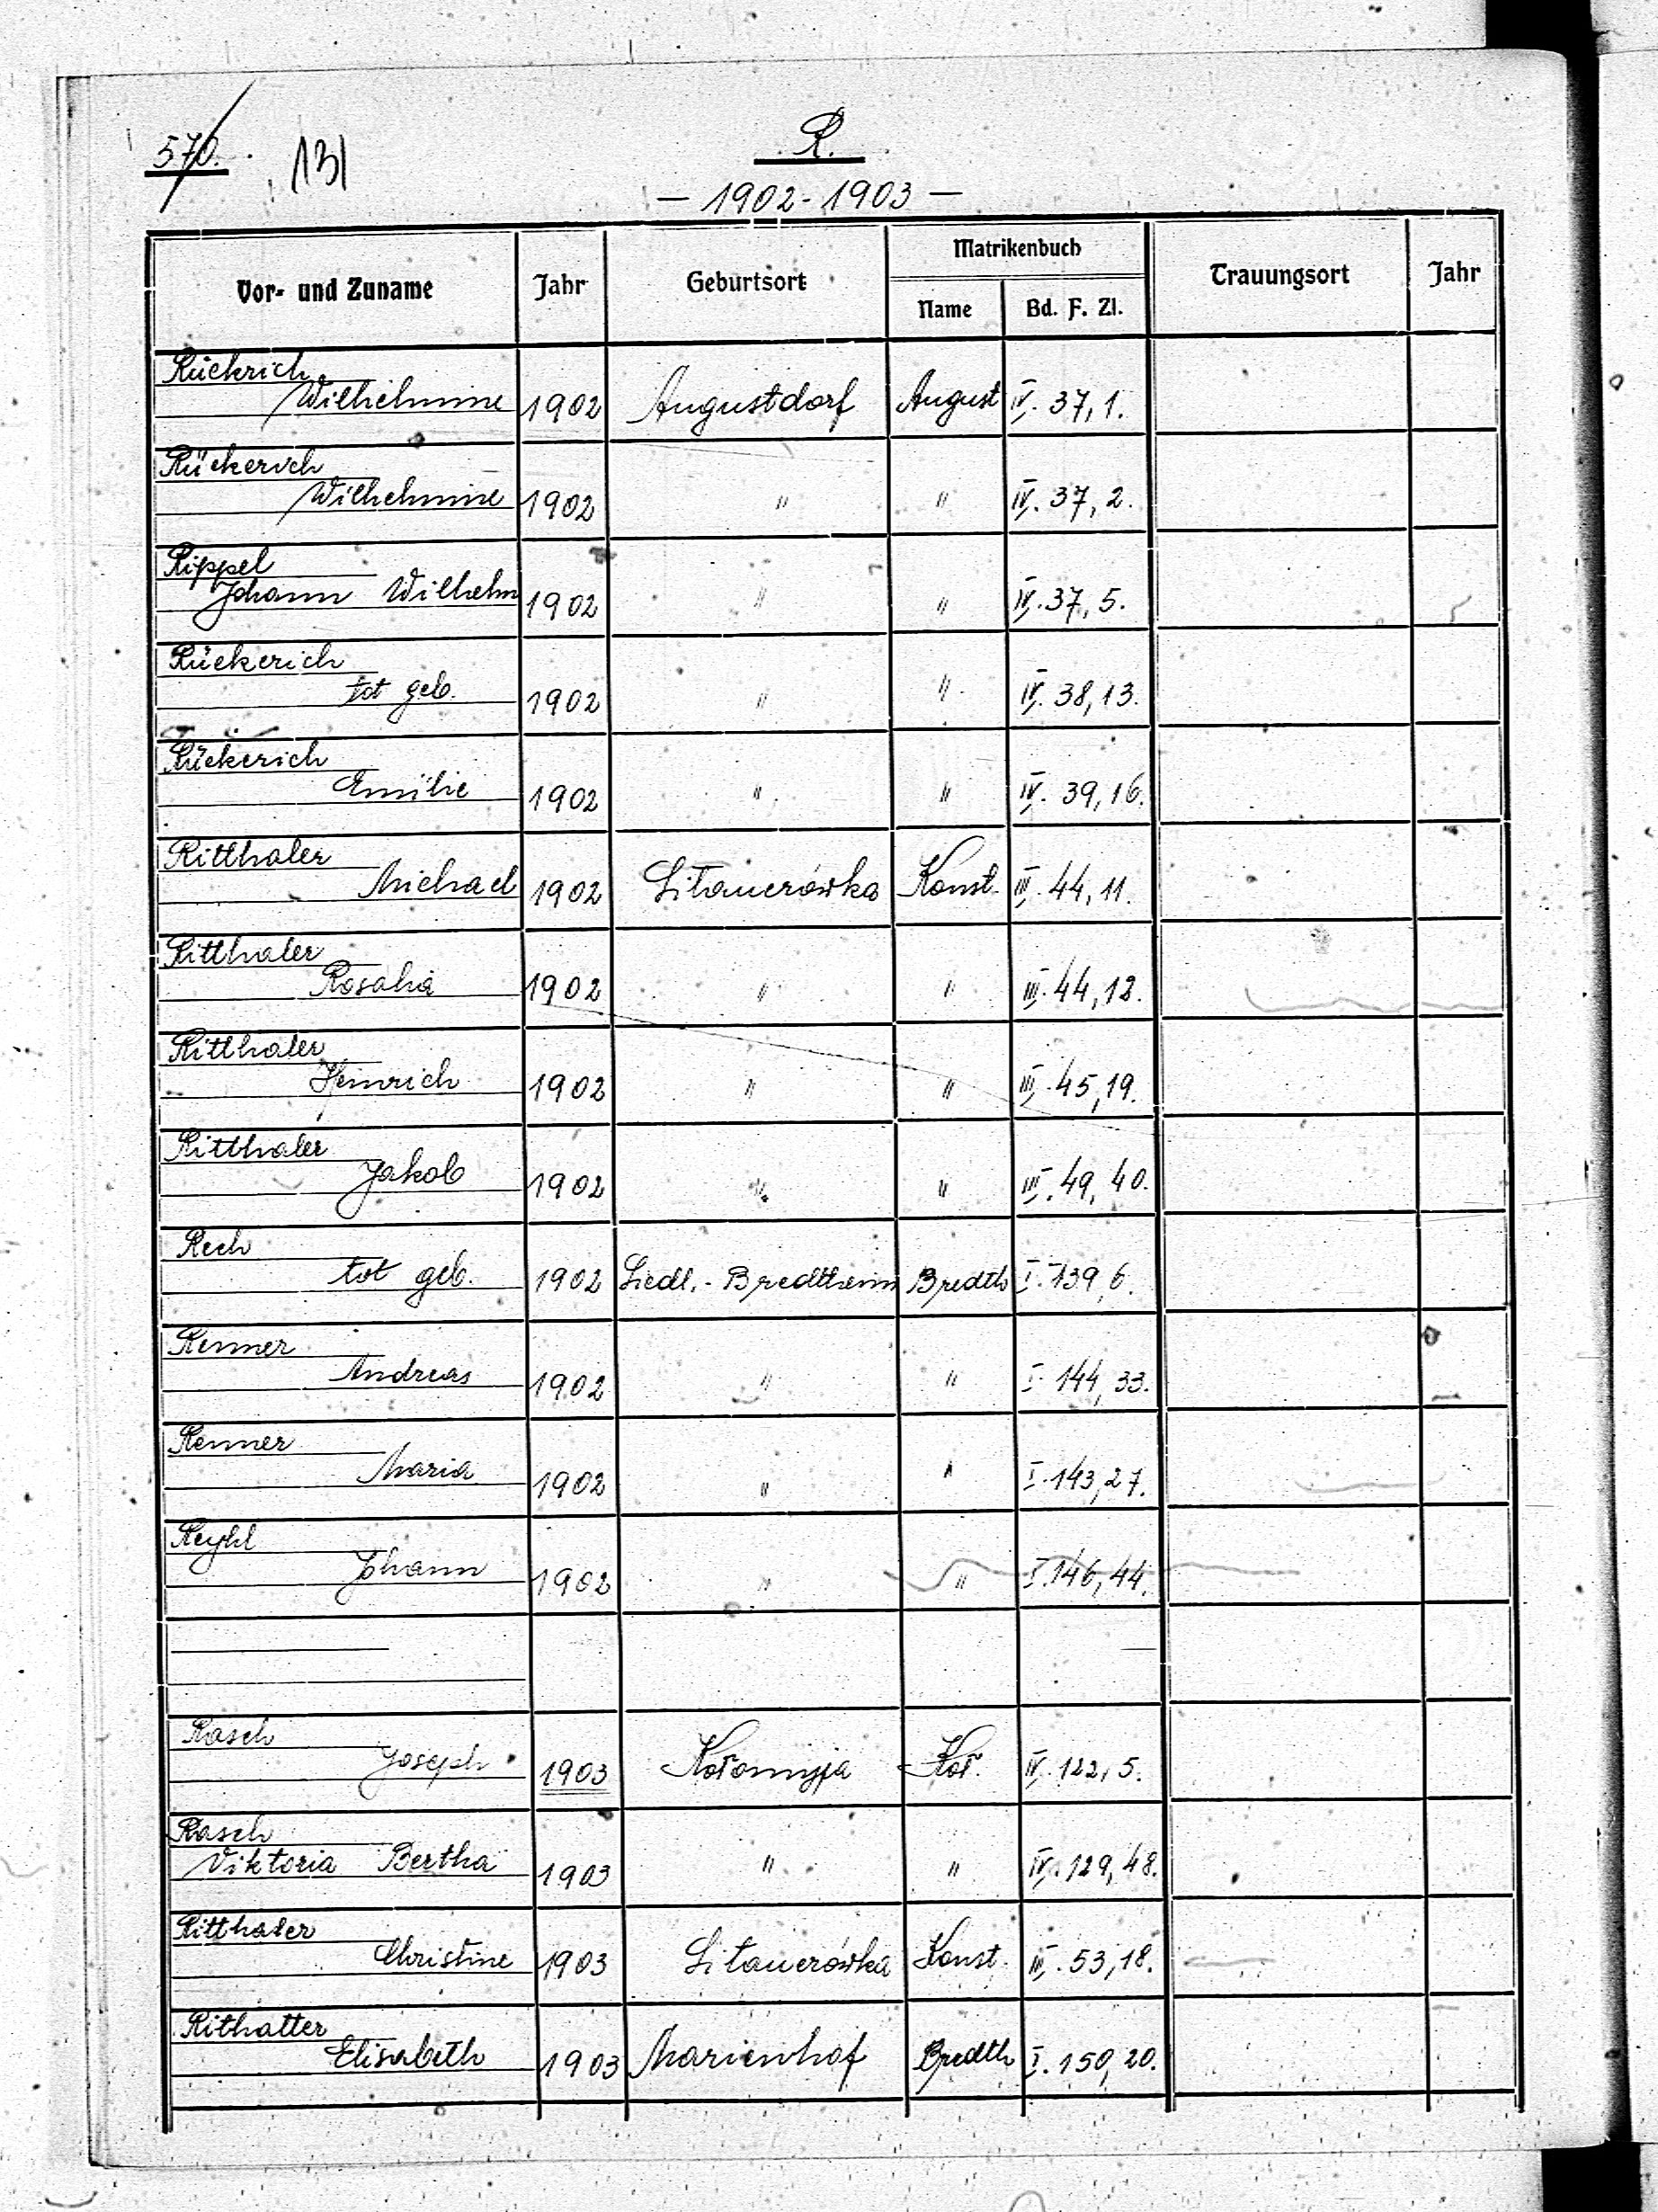 570. 131
R.
— 1902-1903 —
Vor- und Zuname Jahr Geburtsort Matrikenbuch Trauungsort Jahr
Name Bd. F. Zl.
Rückrich
Wilhelmine 1902 Augustdorf August IV. 37, 1.
Rückerich
Wilhelmine 1902 " " IV. 37, 2.
Rippel
Johann Wilhelm 1902 " " IV. 37, 5.
Rückerich
tot geb. 1902 " " IV. 38, 13.
Rückerich
Emilie 1902 " " IV. 39, 16.
Ritthaler
Michael 1902 Sitauerówka Konst. III. 44, 11.
Ritthaler
Rosalia 1902 " " III. 44, 12.
Ritthaler
Heinrich 1902 " " III. 45, 19.
Ritthaler
Jakob 1902 " " III. 49, 40.
Rech
tot geb. 1902 Siedl.-Bredtheim Bredth I. 139, 6.
Renner
Andreas 1902 " " I. 144, 33.
Renner
Maria 1902 " " I. 143, 27.
Reyhl
Johann 1902 " " I. 146, 44.
Rasch
Joseph 1903 Kołomyja Koł. IV. 122, 5.
Rasch
Viktoria Bertha 1903 " " IV. 129, 48.
Ritthaler
Christine 1903 Sitauerówka Konst. III. 53, 18.
Rithatter
Elisabeth 1903 Marienhof Bredth I. 150, 20.